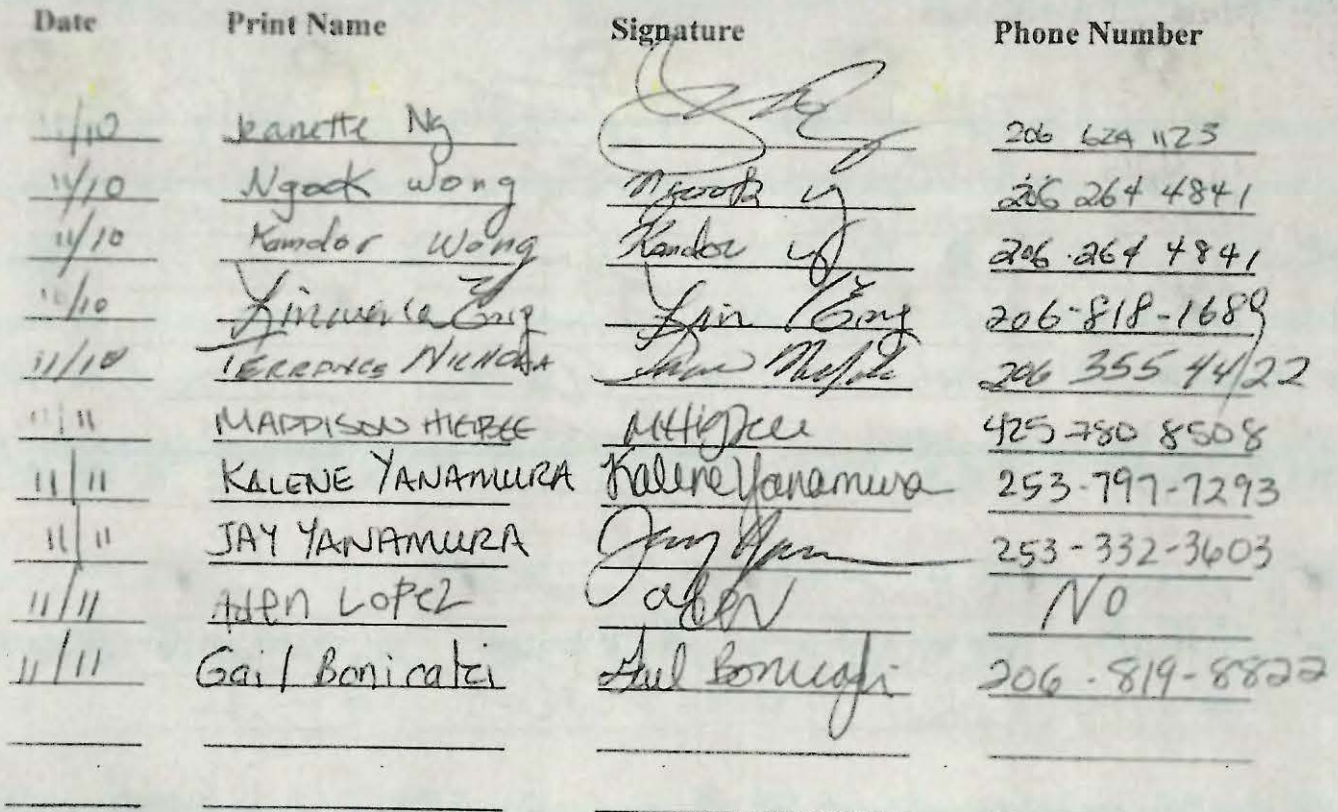 Date Print Name Signature Phone Number
11/10 Jeanette Ng 206 624 1125
11/10 Ngock Wong 206 264 4841
11/10 Kamdor Wong Kandor 206.264 4841
11/10 206-818-1689
11/10 206 355 4422
11/11 MADDISON HIGBEE MHigbee 425-780 8508
11/11 KALENE YANAMURA Kalene Yanamura 253-797-7293
11/11 JAY YANAMURA Jay 253-332-3603
11/11 LOPEZ NO
11/11 Gail Bonicalzi 206-819-8822